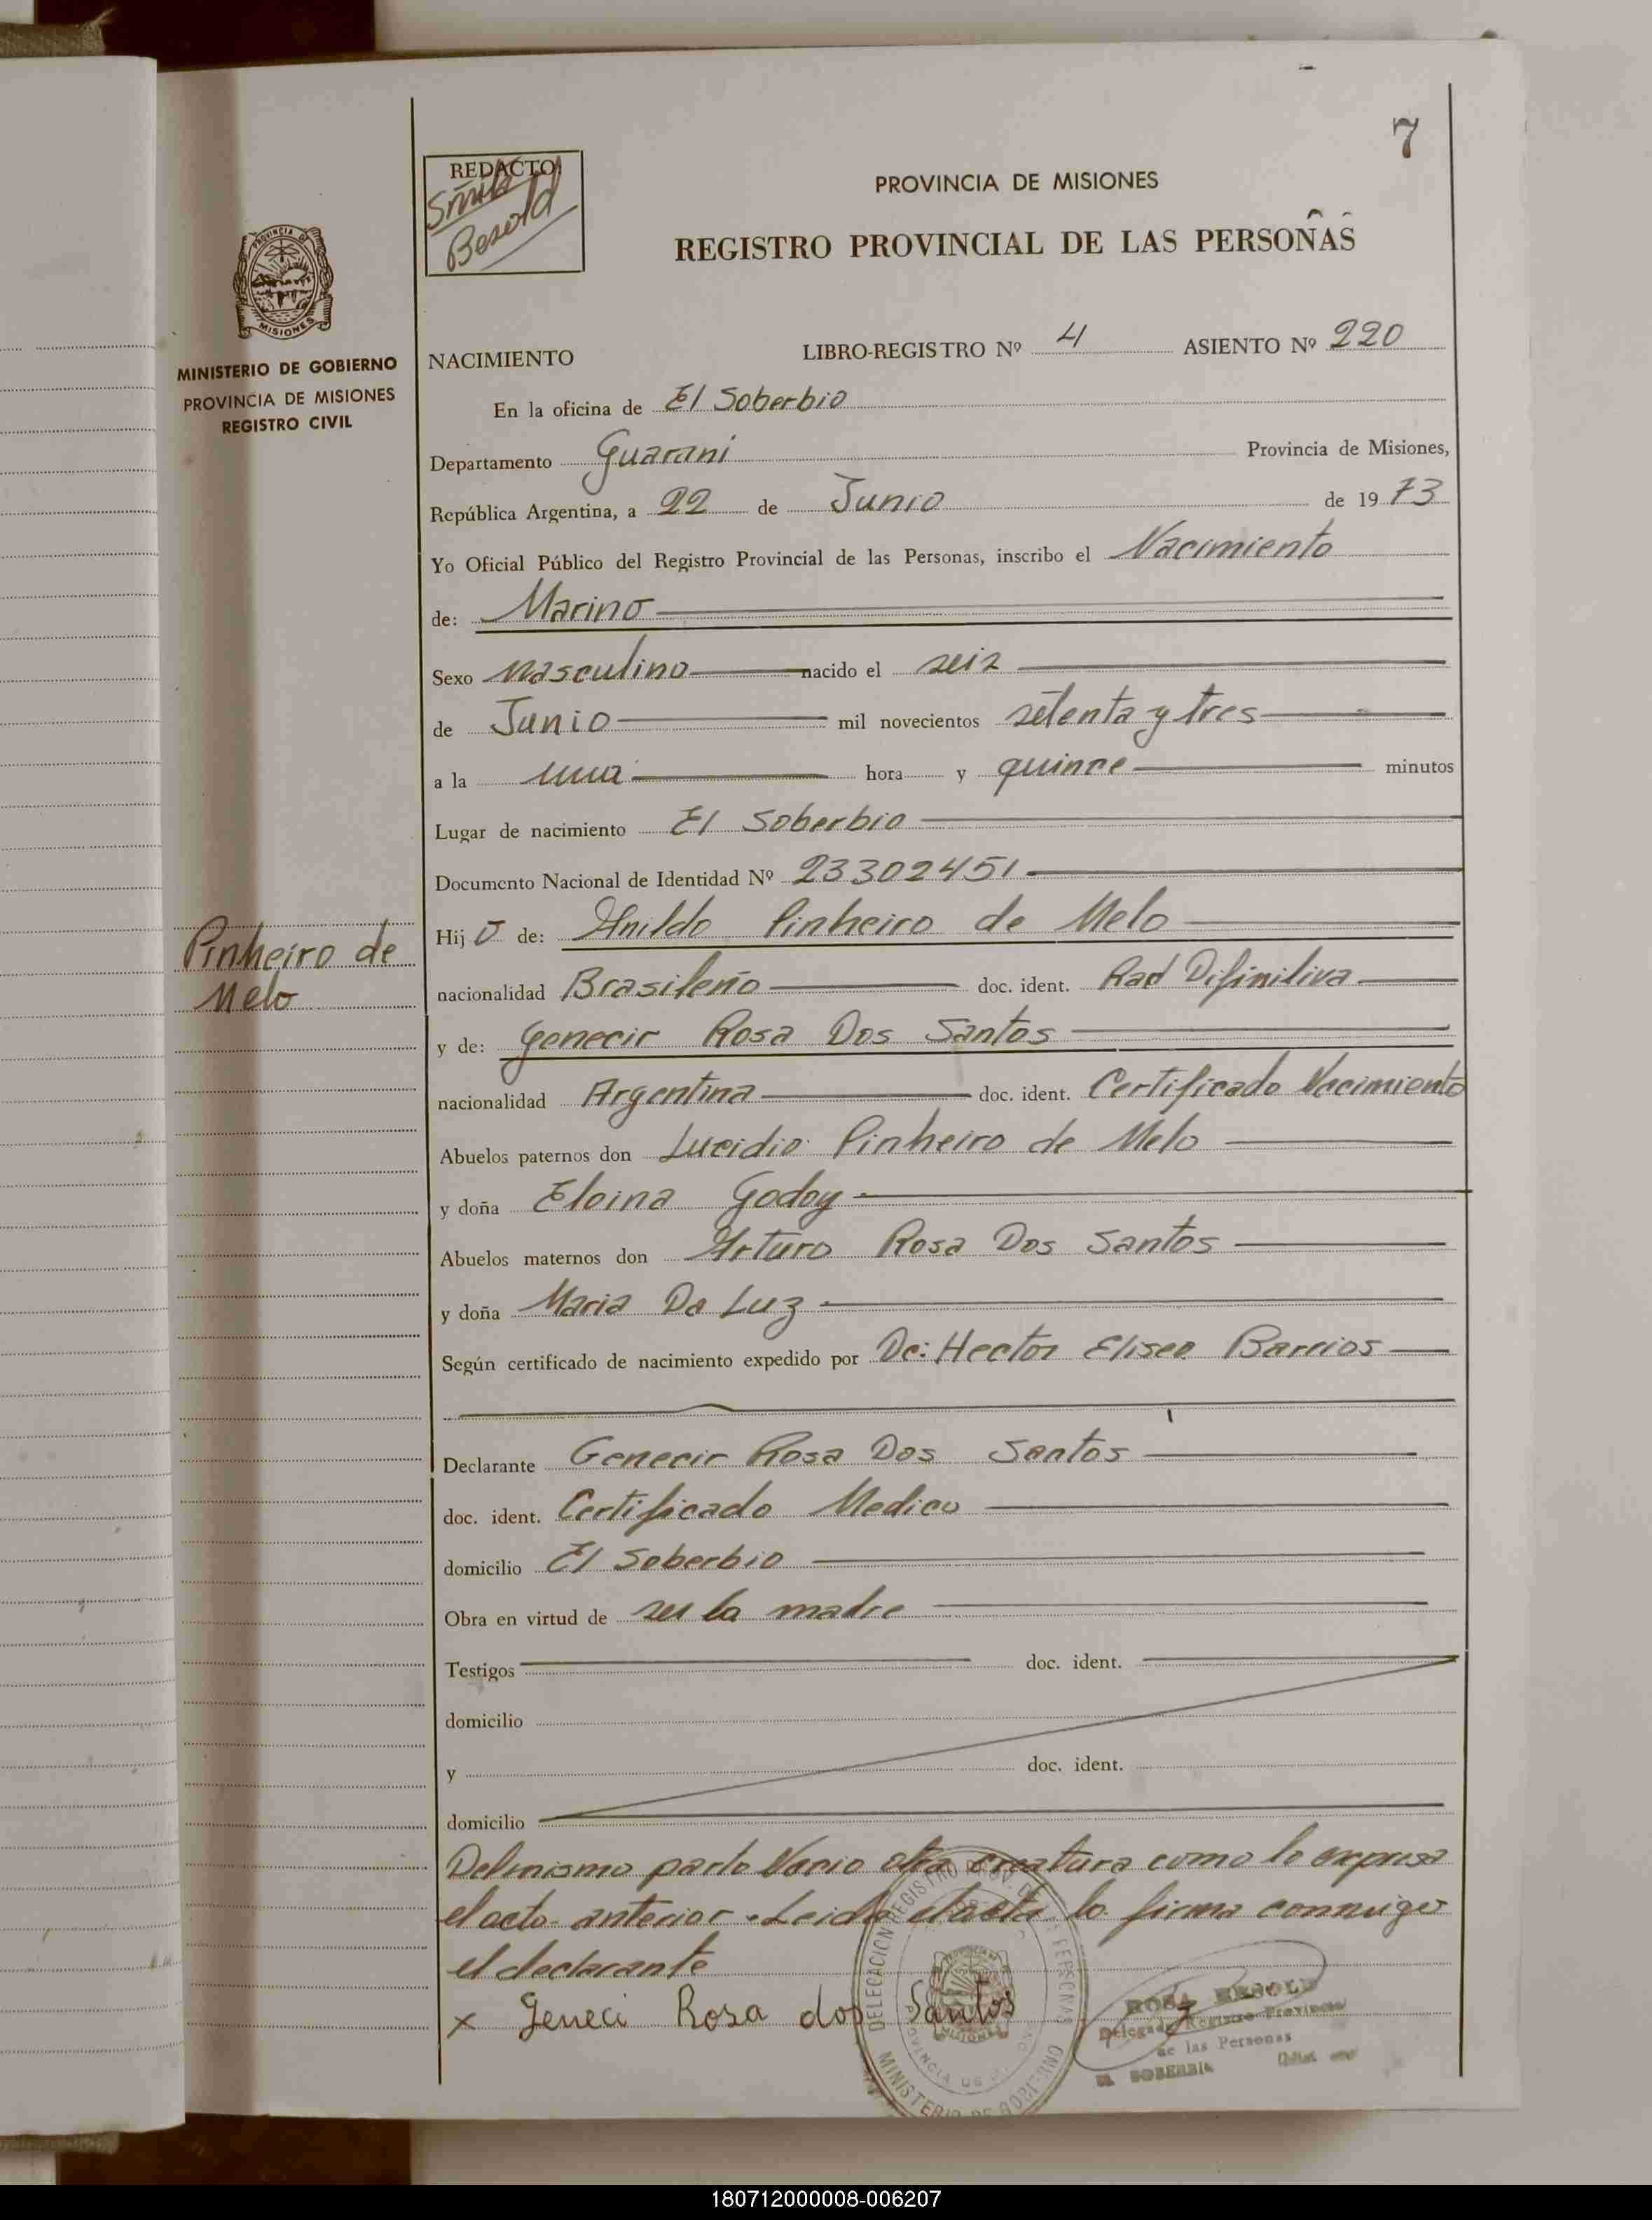 7
REDACTO
Besold
PROVINCIA DE MISIONES
REGISTRO PROVINCIAL DE LAS PERSONAS
PROVINCIA DE
MISIONES
MINISTERIO DE GOBIERNO
PROVINCIA DE MISIONES
REGISTRO CIVIL
NACIMIENTO LIBRO-REGISTRO Nº 4 ASIENTO Nº 220
En la oficina de El Soberbio
Departamento Guarani Provincia de Misiones,
República Argentina, a 22 de Junio de 1973
Yo Oficial Público del Registro Provincial de las Personas, inscribo el Nacimiento
de: Marino
Sexo Masculino nacido el seis
de Junio mil novecientos setenta y tres
a la una hora y quince minutos
Lugar de nacimiento El Soberbio
Documento Nacional de Identidad Nº 23302451
Pinheiro de
Melo
Hijo de: Anildo Pinheiro de Melo
nacionalidad Brasileño doc. ident. Rad Difinitiva
y de: Genecir Rosa Dos Santos
nacionalidad Argentina doc. ident. Certificado Nacimiento
Abuelos paternos don Lucidio Pinheiro de Melo
y doña Eloina Godoy
Abuelos maternos don Arturo Rosa Dos Santos
y doña Maria Da Luz
Según certificado de nacimiento expedido por Dr: Hector Eliseo Barrios
Declarante Genecir Rosa Dos Santos
doc. ident. Certificado Medico
domicilio El Soberbio
Obra en virtud de ser la madre
Testigos doc. ident.
domicilio
y doc. ident.
domicilio
Del mismo parto Nacio otra creatura como lo expresa
el acta anterior. Leida el acta lo firma conmigo
el declarante
x Geneci Rosa dos Santos
DELEGACION REGISTRO PROV. DE PERSONAS
MINISTERIO DE GOBIERNO
ROSA BESOLD
Delegada Registro Provincial
de las Personas
EL SOBERBIO
180712000008-006207